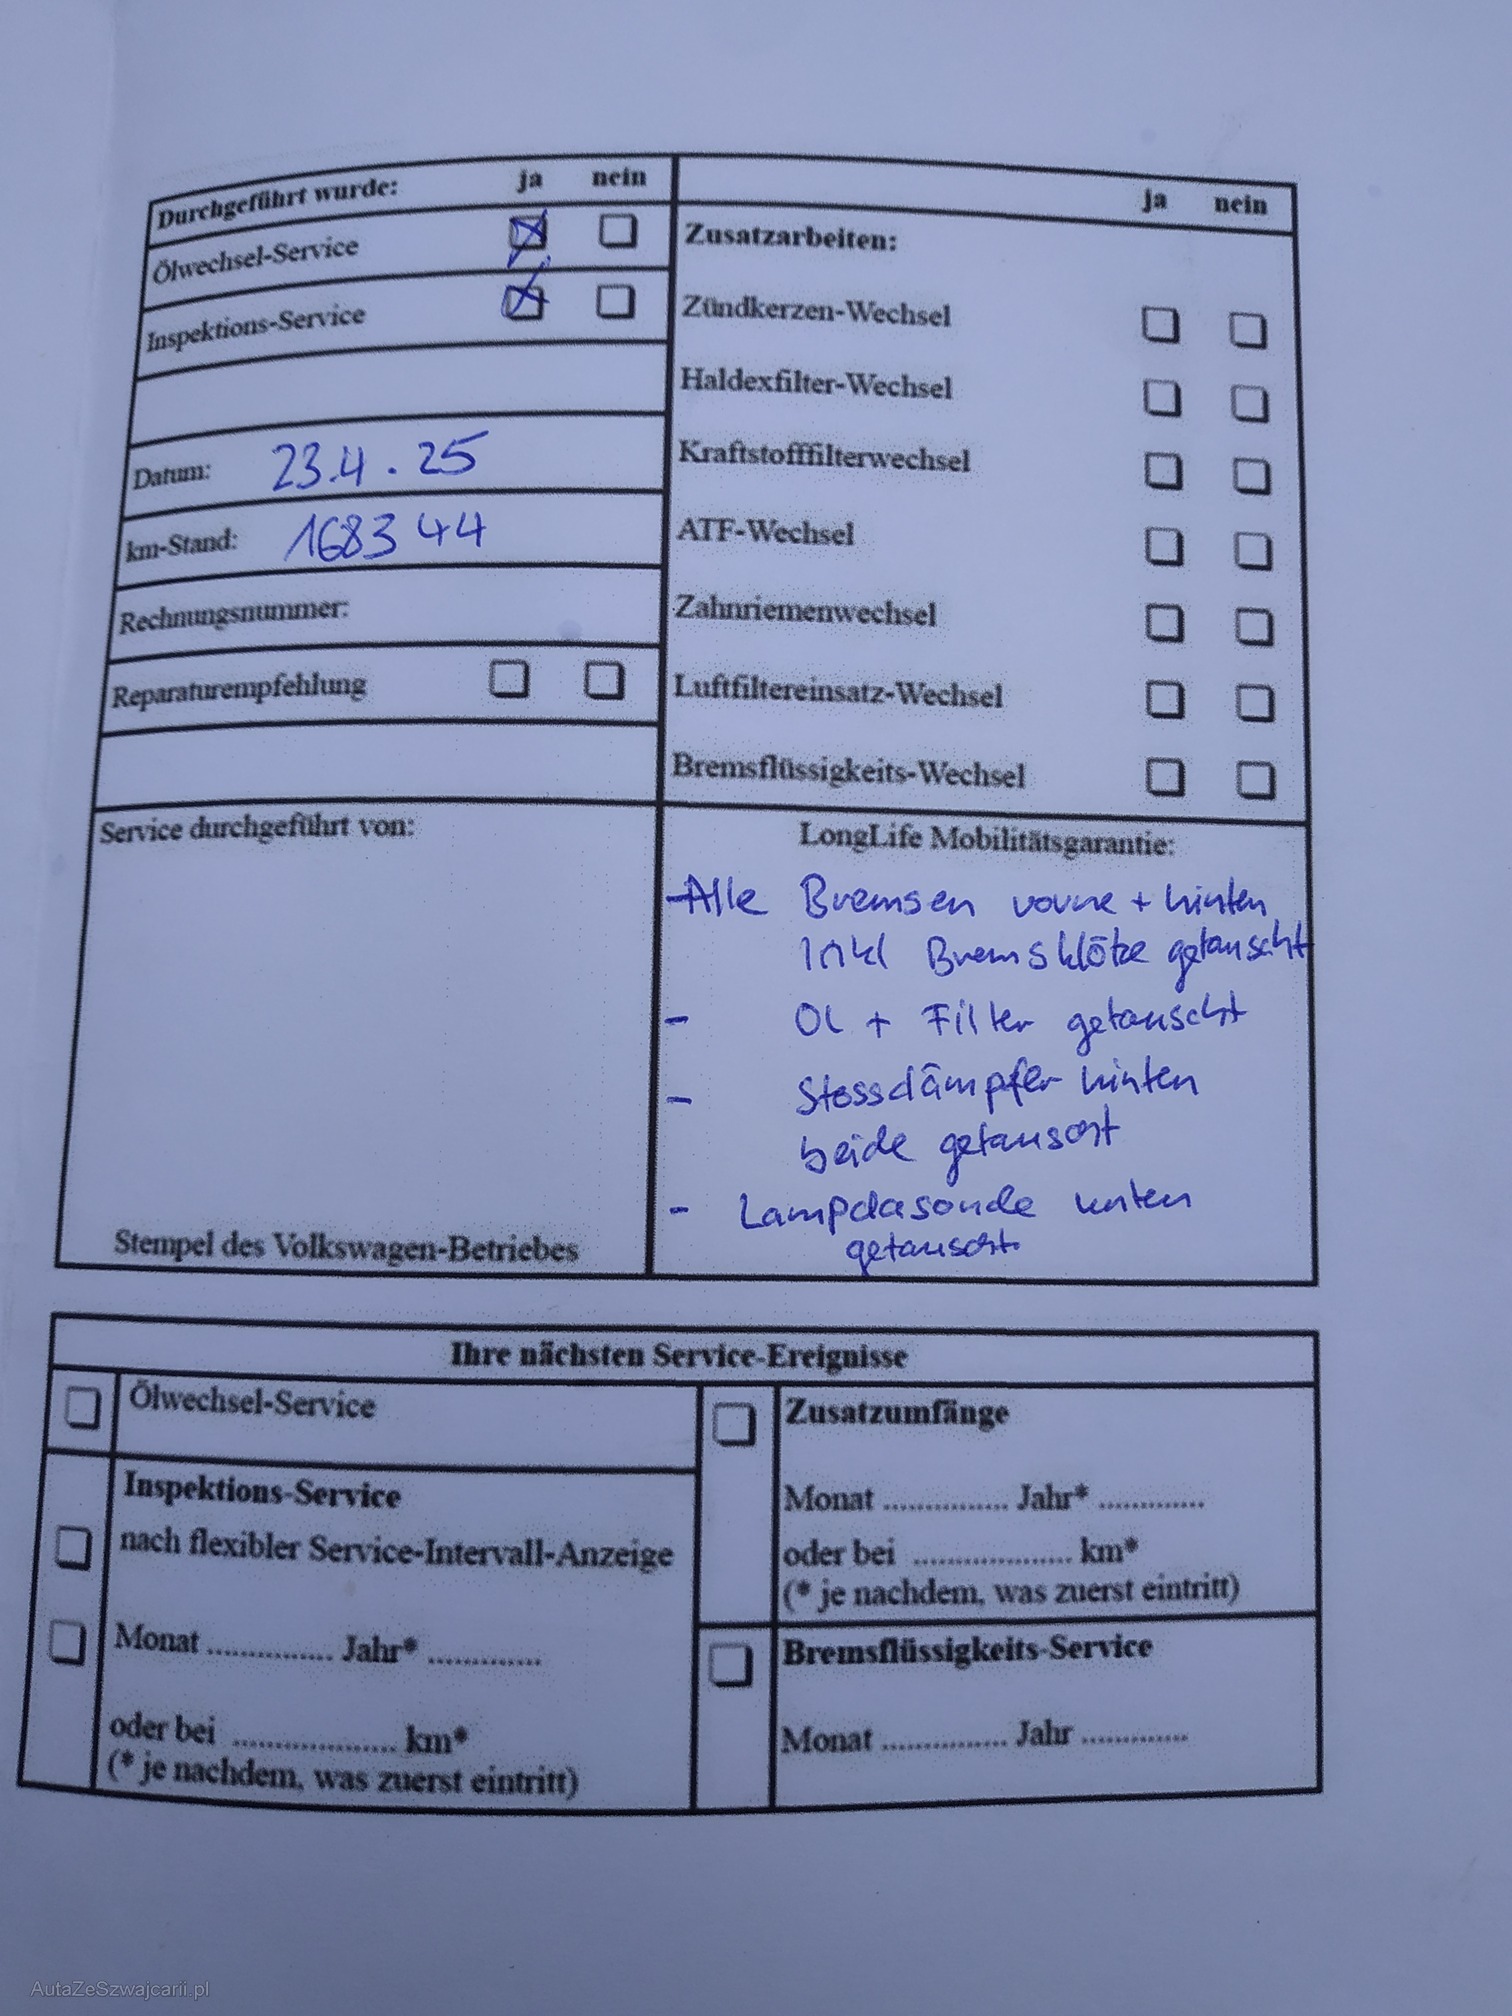 Durchgeführt wurde: ja nein
Ölwechsel-Service
Inspektions-Service
Datum: 23.4.25
km-Stand: 168344
Rechnungsnummer:
Reparaturempfehlung
ja nein
Zusatzarbeiten:
Zündkerzen-Wechsel
Haldexfilter-Wechsel
Kraftstofffilterwechsel
ATF-Wechsel
Zahnriemenwechsel
Luftfiltereinsatz-Wechsel
Bremsflüssigkeits-Wechsel
Service durchgeführt von:
Stempel des Volkswagen-Betriebes
LongLife Mobilitätsgarantie:
- Alle Bremsen vorne + hinten
Inkl Bremsklötze getauscht
- Öl + Filter getauscht
- Stossdämpfer hinten
beide getauscht
- Lampdasonde unten
getauscht
Ihre nächsten Service-Ereignisse
Ölwechsel-Service
Inspektions-Service
nach flexibler Service-Intervall-Anzeige
Monat ............... Jahr* .............
oder bei .................... km*
(* je nachdem, was zuerst eintritt)
Zusatzumfänge
Monat ............... Jahr* .............
oder bei .................... km*
(* je nachdem, was zuerst eintritt)
Bremsflüssigkeits-Service
Monat ............... Jahr .............
AutaZeSzwajcarii.pl